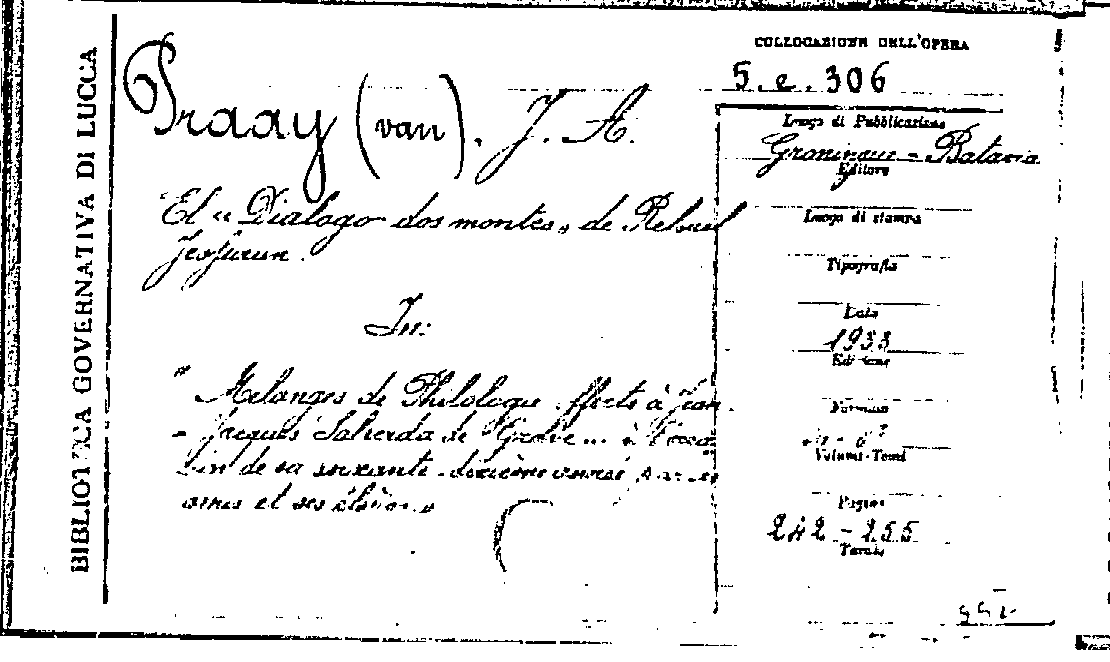 BIBLIOTECA GOVERNATIVA DI LUCCA
Praay (van), J. A.
El « Dialogo dos montes » de Rehuel
Jessurun.
In:
" Mélanges de Philologie offerts à Jean-
- Jacques Salverda de Grave ... à l'occa
de sa soixante-dixième année par ses
amis et ses élèves
COLLOCAZIONE DELL'OPERA
5. e. 306
Luogo di Pubblicazione
Groningue - Batavia
Editore
Luogo di stampa
Tipografia
Data
1933
Edizione
Formato
in - 8°
Volumi-Tomi
Pagine
242 - 255
Tavole